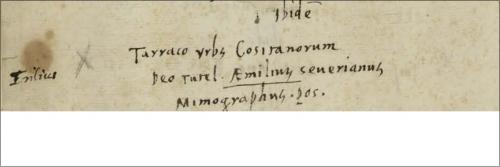 ibidē
Tarraco urbs Cositanorum
Deo tutel. Æmilius severianus
Mimographus. pos.